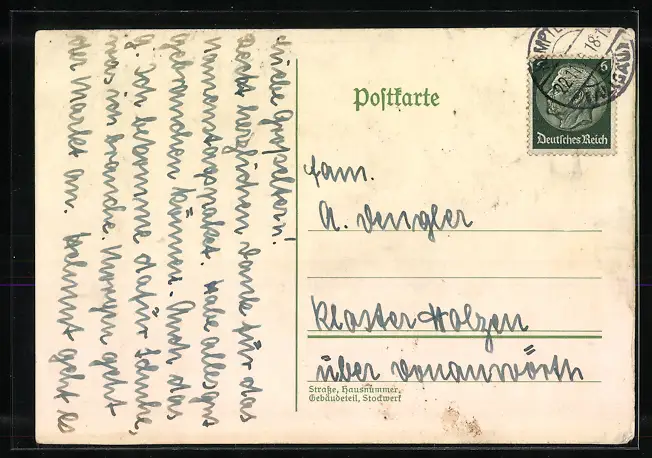 Liebe Großeltern!
Recht herzlichen Dank für das
Namenstagspaket. Habe alles gut
gebrauchen können. Auch das
G. Ich bekomme dafür Schuhe,
was ich brauche. Morgen geht
der Markt an. Helmut geht es
Postkarte
KEMPTEN
(ALLGÄU)
6
Deutsches Reich
Fam.
A. Dengler
Kloster Holzen
über Donauwörth
Straße, Hausnummer,
Gebäudeteil, Stockwerk